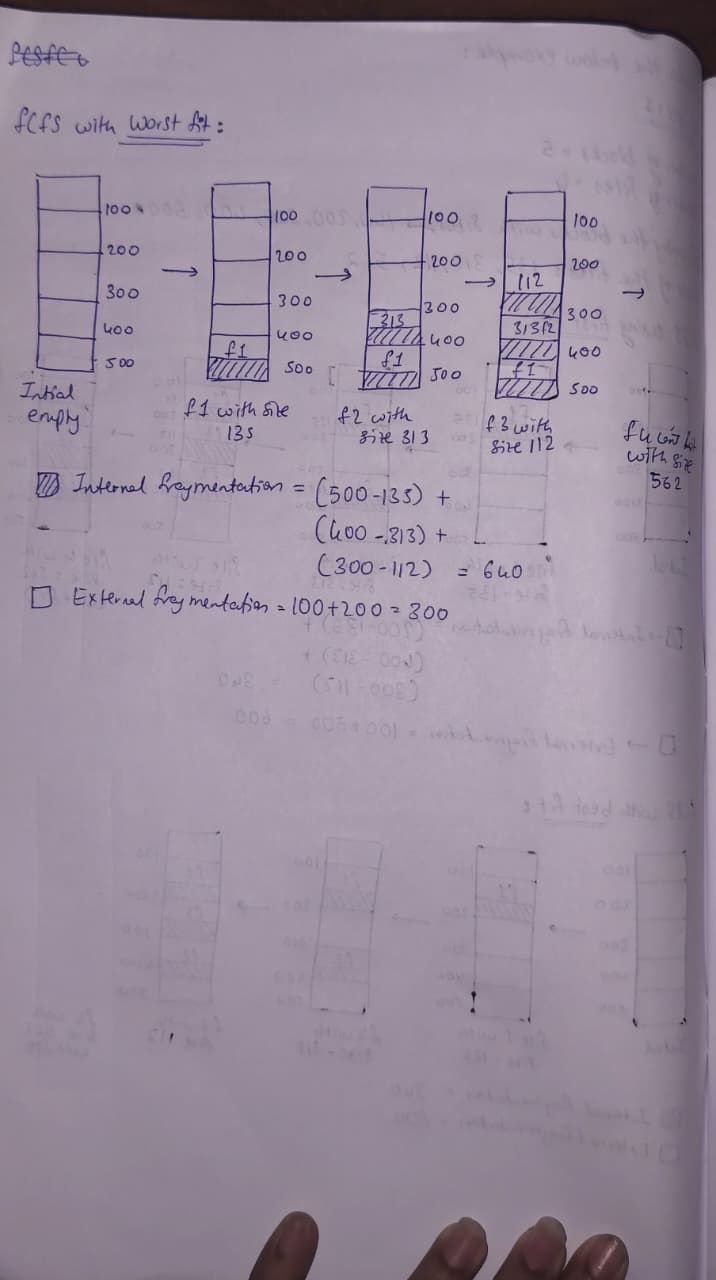 fcfs with Worst fit :
100
200
300
400
500
Intial
empty
100
200
300
400
f1
500
f1 with size
135
100
200
300
313
400
f1
500
f2 with
size 313
100
200
112
300
313f2
400
f1
500
f3 with
size 112
with size
562
Internal fragmentation = (500-135) +
(400-313) +
(300-112) = 640
External fragmentation = 100+200 = 300